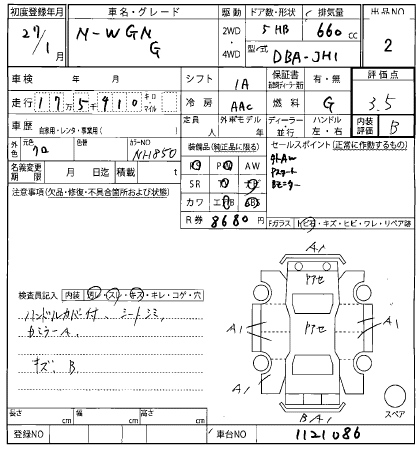 初度登録年月 車名・グレード 駆動 ドア数・形状 排気量 出品NO
27/1 N-WGN G 2WD 4WD 5 HB 660 cc 2
型式 DBA-JH1
車検 年 月 シフト IA 保証書 有・無 評価点
走行 175910 キロ・マイル 冷房 AAC 燃料 G 3.5
車歴 自家用・レンタ・事業用( ) 定員 人 外車モデル 年 ディーラー 並行 ハンドル 左・右 内装評価 B
外色 元色 クロ 色替 カラーNO NH850 装備品(純正品に限る) セールスポイント(正常に作動するもの)
名義変更期限 月 日迄 積載 t PS PW AW 外AW
注意事項(欠品・修復・不具合箇所および状態) SR TV ナビ Pスタート
カワ エアB ABS Bモニター
R券 8680円 Fガラス トビ石・キズ・ヒビ・ワレ・リペア跡
A1
アセ
アセ
A1 A1
A1
BA1
検査員記入 内装 汚レ・スレ・キズ・キレ・コゲ・穴
ハンドルカバー付、シートシミ
キズ、B
スペア
長さ cm 幅 cm 高さ cm
登録NO 車台NO 1121086